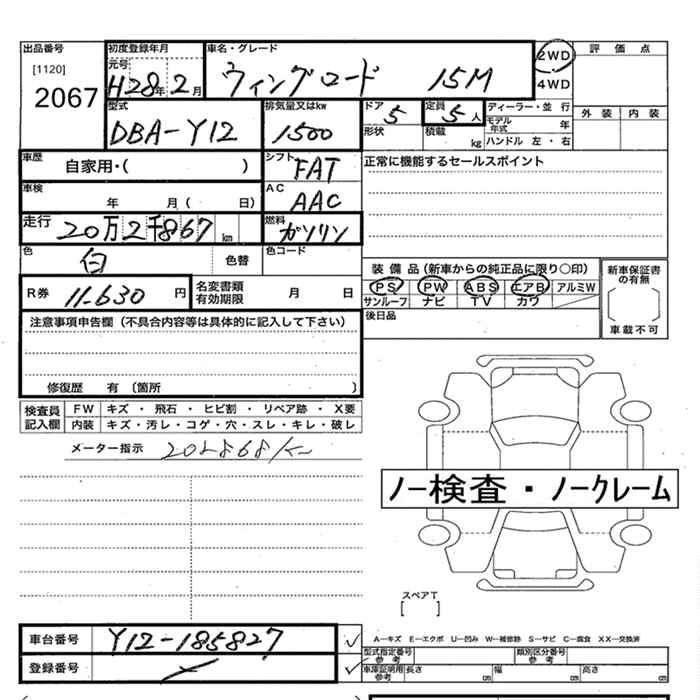 出品番号 初度登録年月 車名・グレード 2WD 評価点
[1120] 元号 H28年2月 ウィングロード 15M 4WD
2067
型式 排気量又はkw ドア 定員 ディーラー・並行 外装 内装
DBA-Y12 1500 5 5人 モデル年式 年
形状 積載 kg ハンドル 左・右
車歴 自家用・( ) シフト FAT 正常に機能するセールスポイント
車検 年 月( 日) AC AAC
走行 20万2千867km 燃料 ガソリン
色 白 色替 色コード
装備品(新車からの純正品に限り○印) 新車保証書の有無
R券 11.630円 名変書類有効期限 月 日 PS PW ABS エアB アルミW
サンルーフ ナビ TV カワ 車載不可
注意事項申告欄(不具合内容等は具体的に記入して下さい) 後日品
修復歴 有〔箇所 〕
検査員記入欄 FW キズ・飛石・ヒビ割・リペア跡・X要
内装 キズ・汚レ・コゲ・穴・スレ・キレ・破レ
メーター指示
ノー検査・ノークレーム
スペアT
[ ]
車台番号 Y12-185827 A—キズ E—エクボ U—凹み W—補修跡 S—サビ C—腐食 XX—交換済
登録番号 型式指定番号 参考 類別区分番号 参考
車庫証明用 参考 長さ cm 幅 cm 高さ cm